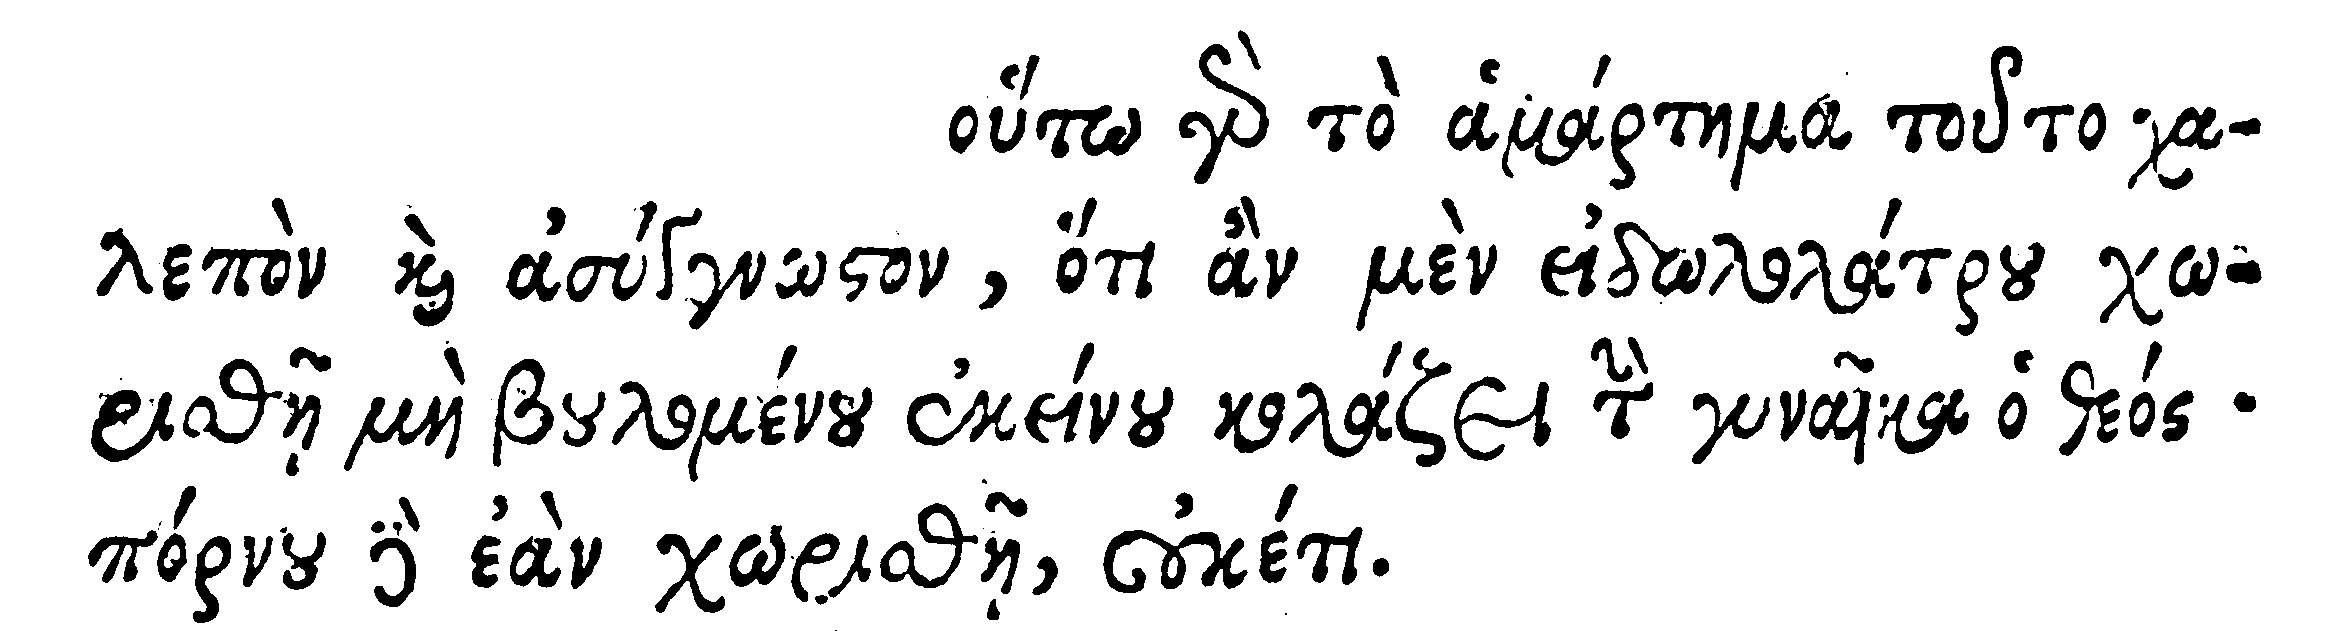 οὕτω γὰρ τὸ ἁμάρτημα τοῦτο χα-
λεπὸν καὶ ἀσύγγνωστον, ὅτι ἂν μὲν εἰδωλολάτρου χω-
ρισθῇ μὴ βουλομένου ἐκείνου κολάζει τὴν γυναῖκα ὁ θεός·
πόρνου δὲ ἐὰν χωρισθῇ, οὐκέτι.